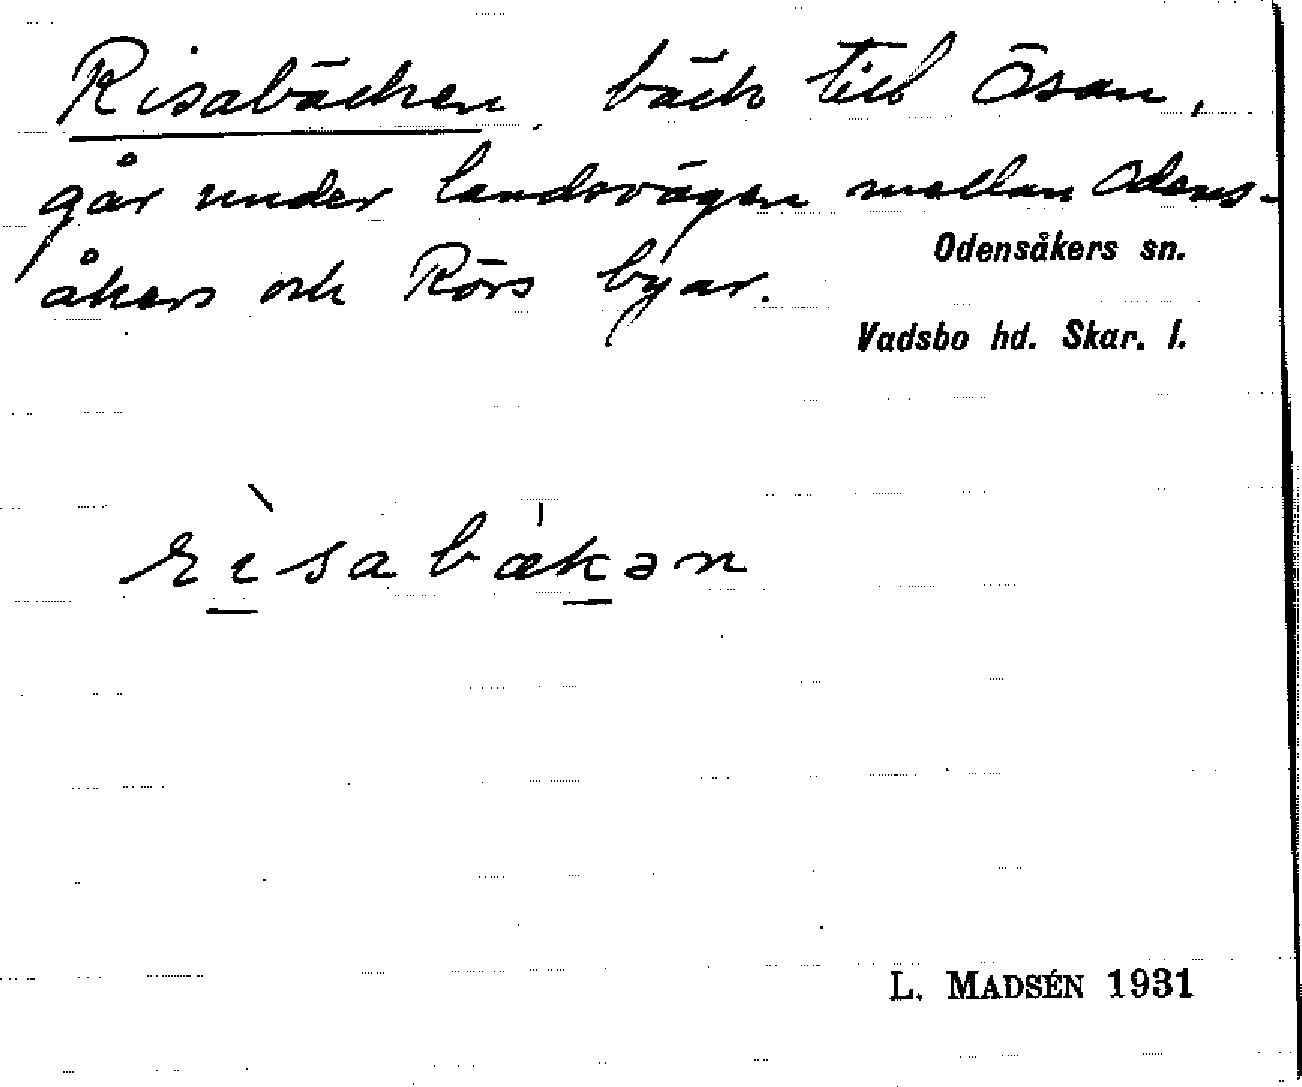 Risabäcken, bäck till Ösan,
går under landsvägen mellan Odens-
åkers och Rörs byar.
Odensåkers sn.
Vadsbo hd. Skar. l.
rìsabækən
L. MADSÉN 1931